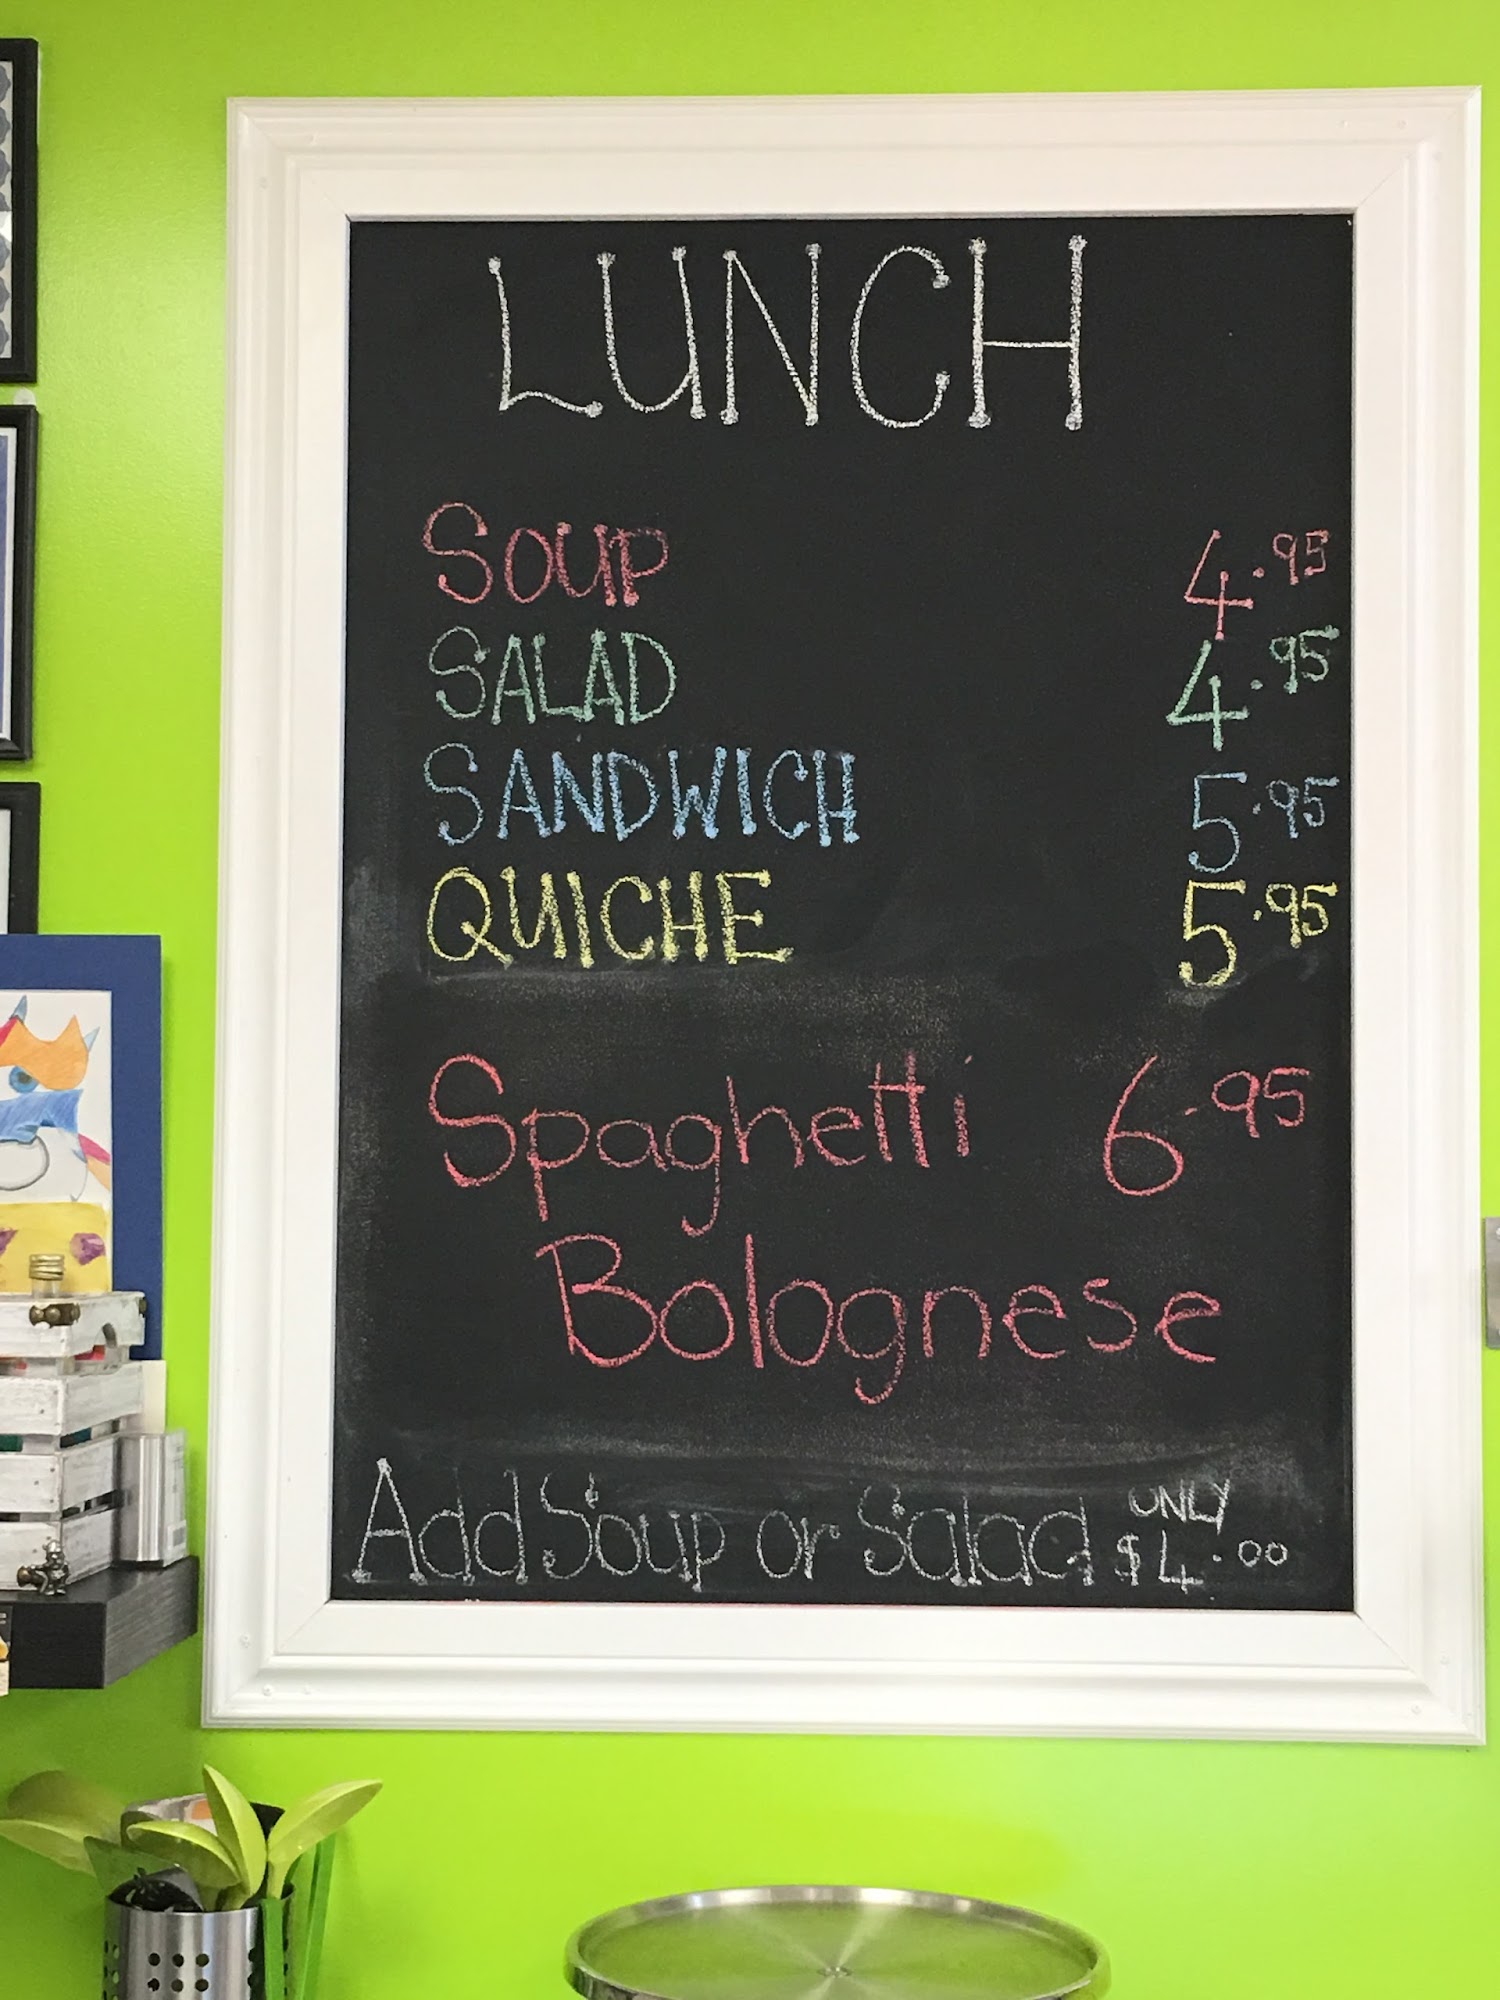 LUNCH
SOUP 4.95
SALAD 4.95
SANDWICH 5.95
QUICHE 5.95
Spaghetti 6.95
Bolognese
Add Soup or Salad ONLY $4.00